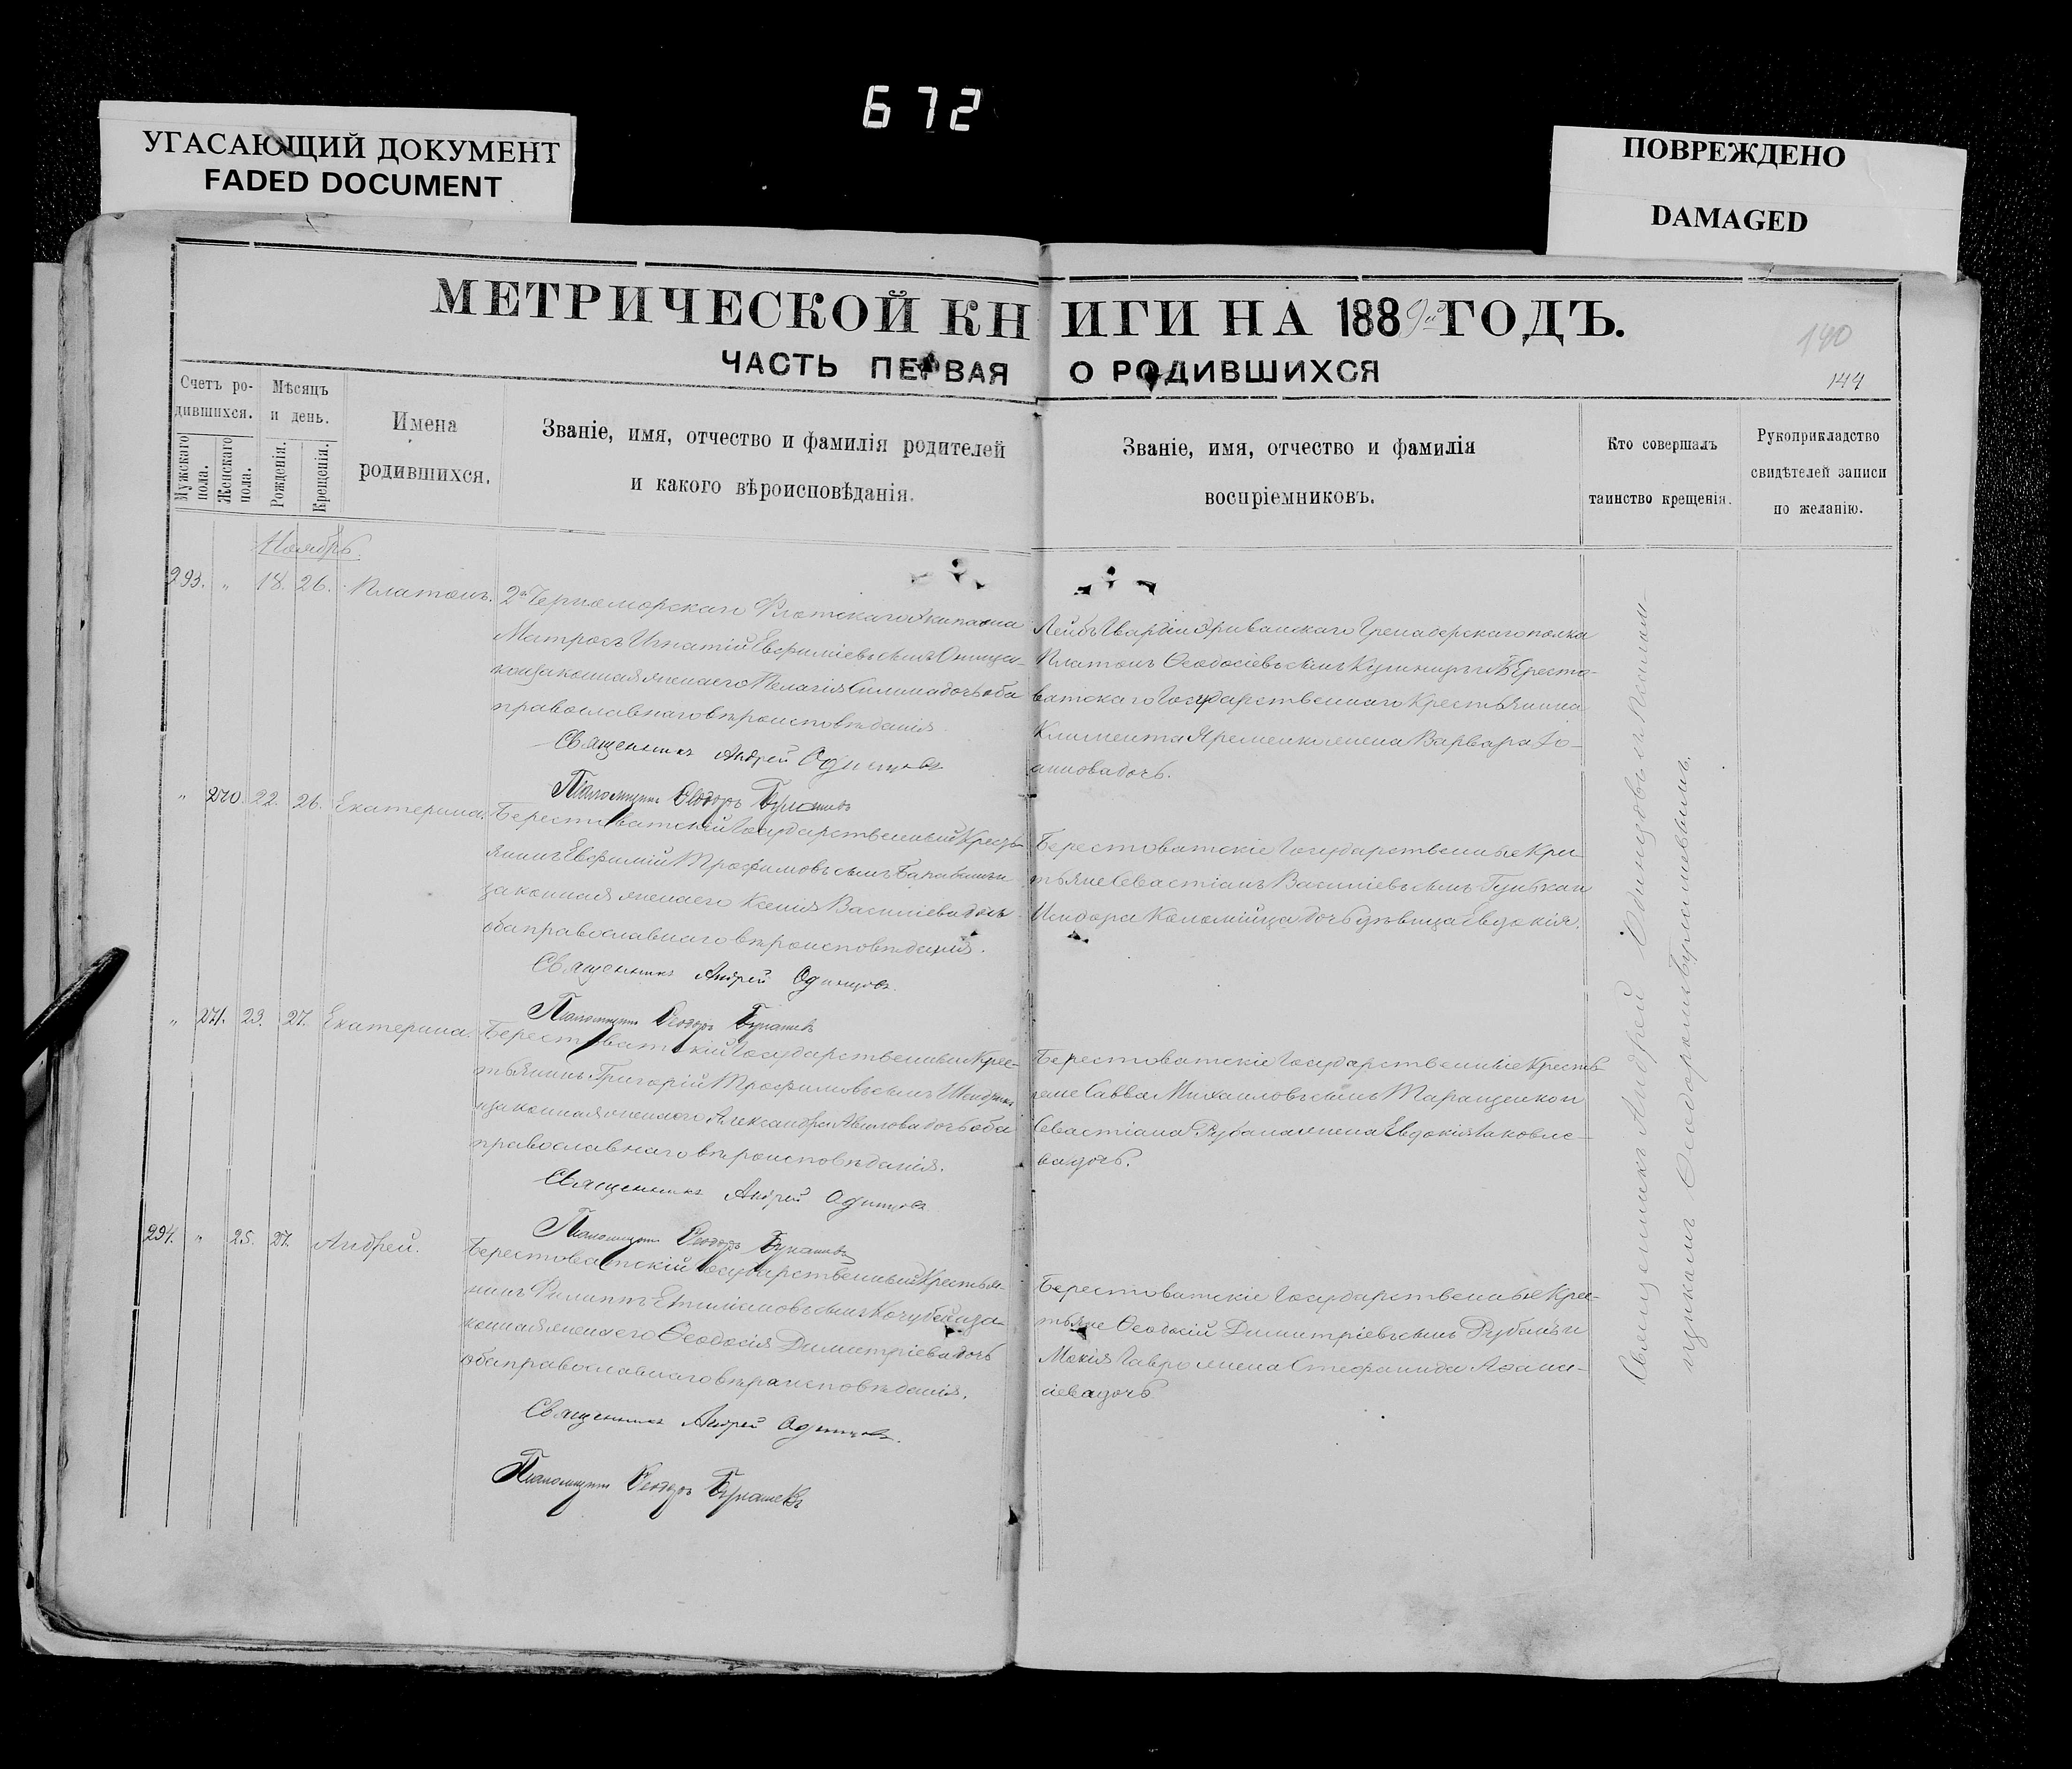 672
УГАСАЮЩИЙ ДОКУМЕНТ
FADED DOCUMENT
ПОВРЕЖДЕНО
DAMAGED
МЕТРИЧЕСКОЙ КНИГИ НА 1889й ГОДЪ.
140
ЧАСТЬ ПЕРВАЯ О РОДИВШИХСЯ
144
Счетъ ро-
дившихся.
Мужскаго пола.
Женскаго пола.
Мѣсяцъ
и день.
Рожденія.
Крещенія.
Имена
родившихся.
Званіе, имя, отчество и фамилія родителей
и какого вѣроисповѣданія.
Званіе, имя, отчество и фамилія
воспріемниковъ.
Кто совершалъ
таинство крещенія.
Рукоприкладство
свидѣтелей записи
по желанію.
Ноябрь.
293. " 18. 26. Платонъ.
2го Черноморскаго Флотскаго Экипажа
Матросъ Игнатій Евфиміевъ сынъ
законная жена его Пелагія дочь оба
православнаго вѣроисповѣданія
Священникъ Андрей Одинцовъ
Псаломщикъ Ѳеодоръ
Лейбъ Гвардіи Эриванскаго Гренадерскаго полка
Платонъ Ѳеодосіевъ сынъ и Бересто-
ватскаго Государственнаго Крестьянина
Климента Яременко жена Варвара Іо-
аннова дочь.
" 270. 22. 26. Екатерина.
Берестоватскій Государственный Кресть-
янинъ Евфимій Трофимовъ сынъ
законная жена его Ксенія Василіева дочь
оба православнаго вѣроисповѣданія.
Священникъ Андрей Одинцовъ.
Псаломщикъ Ѳеодоръ
Берестоватскіе Государственные Крес-
тьяне Севастіанъ Василіевъ сынъ и
Исидора Коломійца дочь дѣвица Евдокія.
" 271. 23. 27. Екатерина.
Берестоватскій Государственный Крес-
тьянинъ Григорій Трофимовъ сынъ
и законная жена его Александра дочь оба
православнаго вѣроисповѣданія.
Священникъ Андрей Одинцовъ
Псаломщикъ Ѳеодоръ
Берестоватскіе Государственные Кресть-
яне Савва Михаиловъ сынъ Таращенко и
Севастіана Рубана жена Евдокія Іаковле-
ва дочь.
294. " 25. 27. Андрей.
Берестоватскій Государственный Крестья-
нинъ Филиппъ сынъ Кочубей и за-
конная жена его Ѳеодосія Димитріева дочь
оба православнаго вѣроисповѣданія.
Священникъ Андрей Одинцовъ.
Псаломщикъ Ѳеодоръ
Берестоватскіе Государственные Крес-
тьяне Ѳеодосій Димитріевъ сынъ Рубанъ и
Мокія Гавро жена Стефанида Аѳана-
сіева дочь
Священникъ Андрей Одинцовъ съ Псалом-
щикомъ Ѳеодоромъ